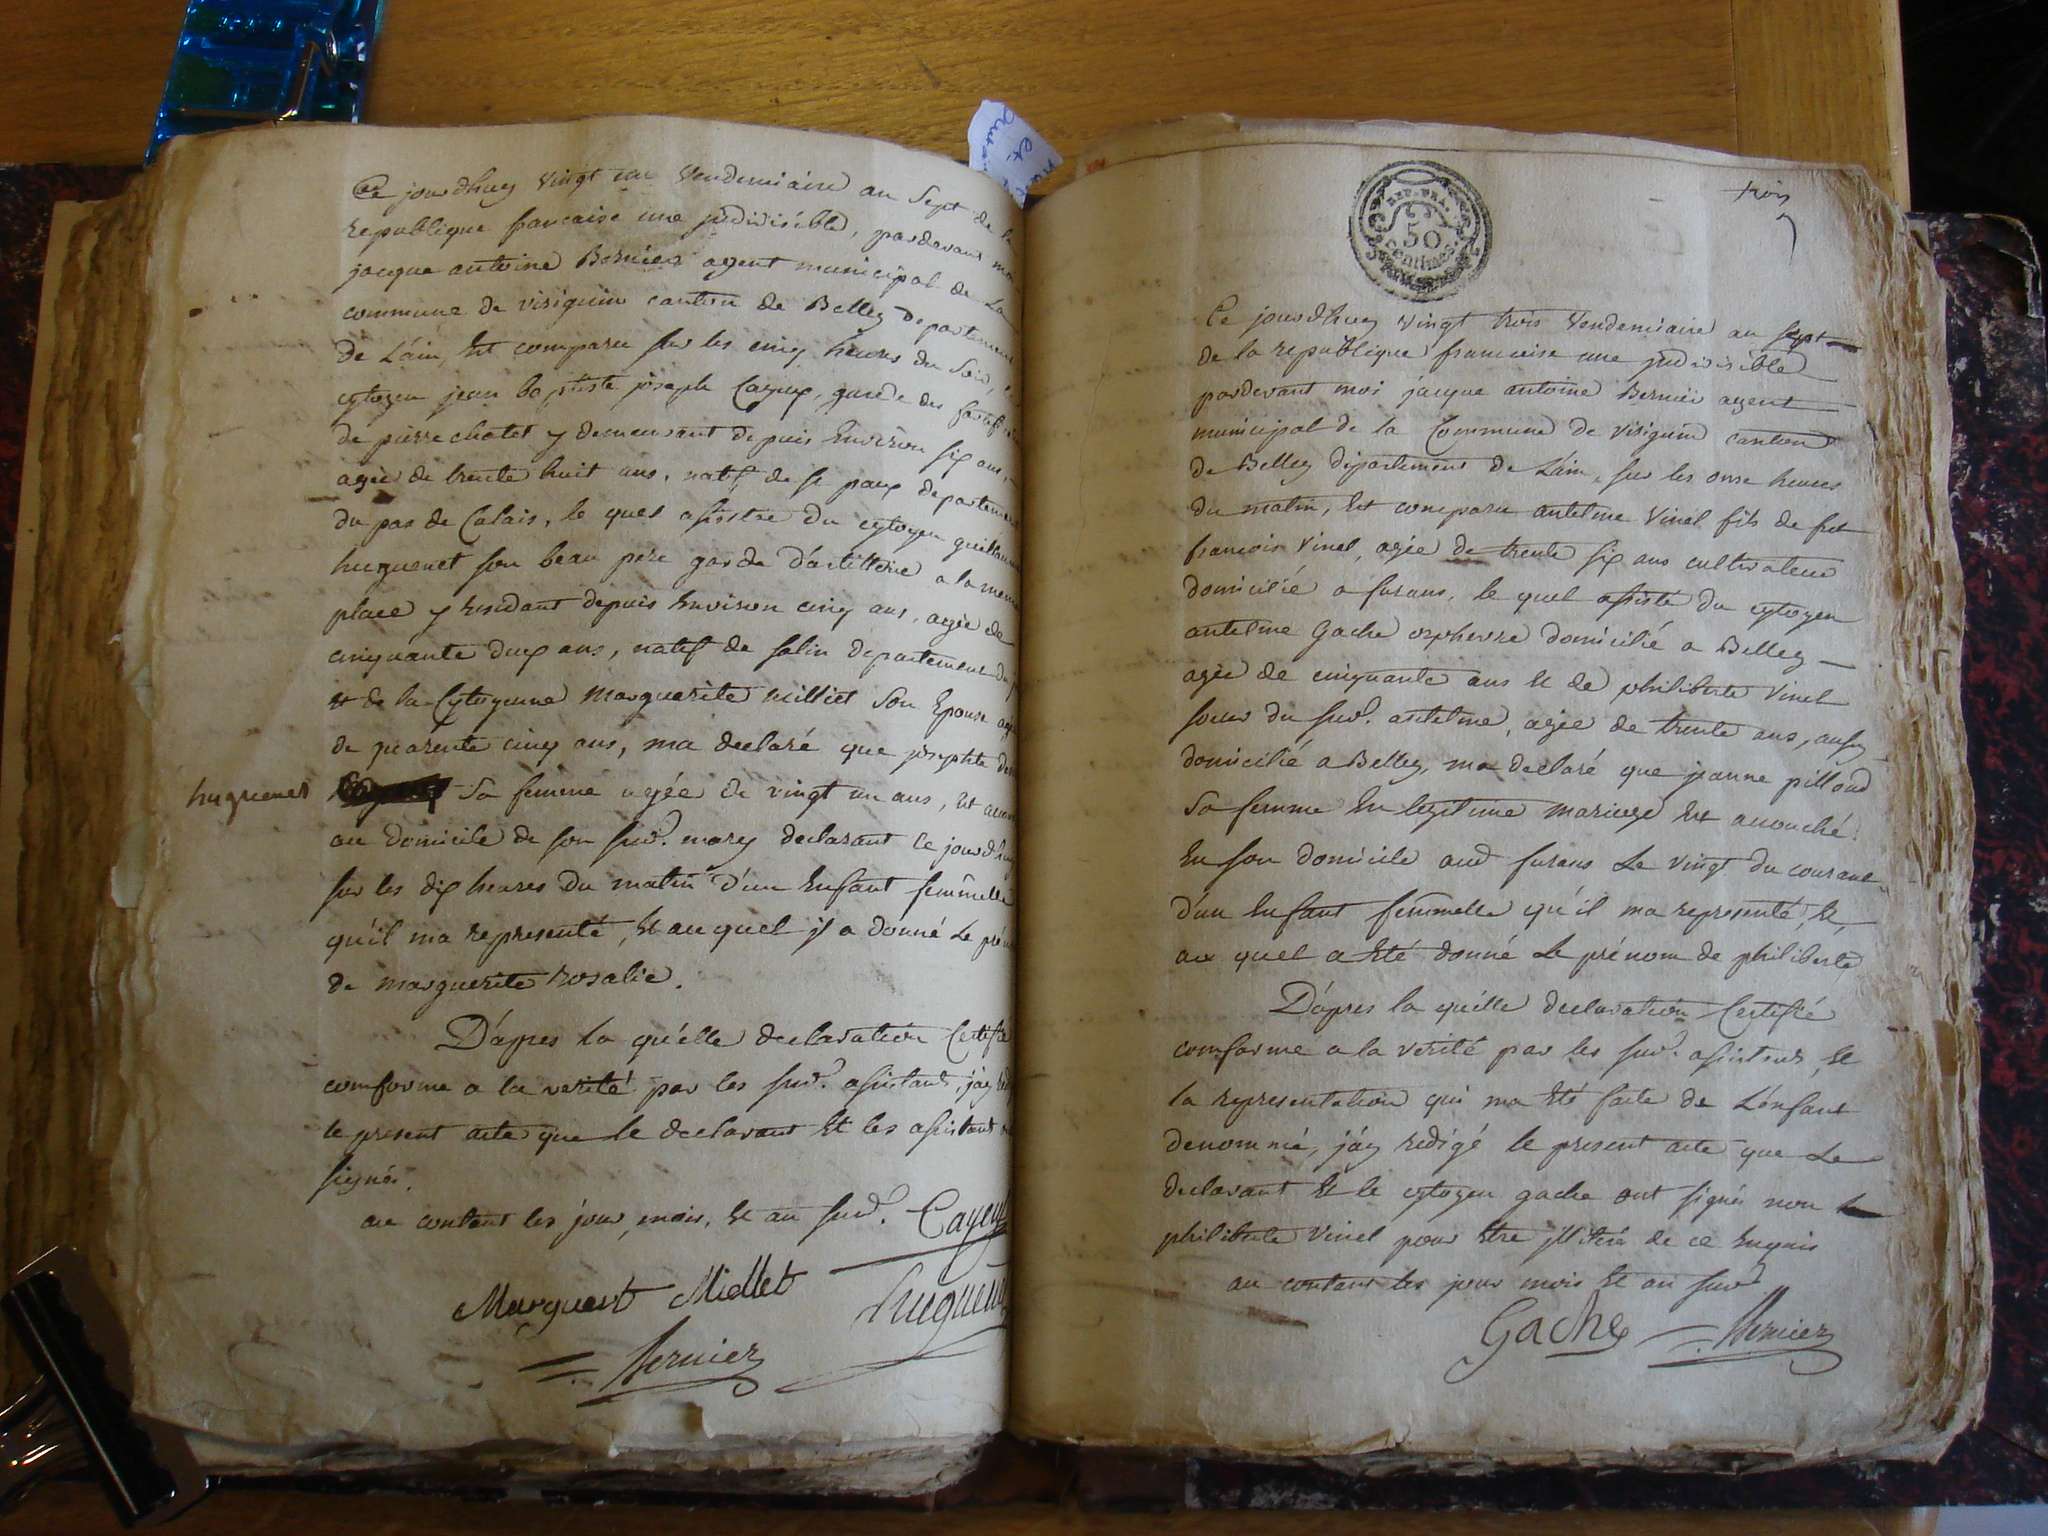 Ce jourdhuy vingt un Vendemiaire an Sept de la
republique francaise une indivisible, pardevant moi
jacque antoine Bernier agent municipal de La
commune de virignin canton de Belley departement
de L'ain, Est comparu sur les cinq heures du soir, le
cytoyen jean baptiste joseph Cayeux, garde des
de pierre chatel y demeurant depuis Environ six ans,
agée de trente huit ans, natif de st paux departement
du pas de Calais, le quel assistée du cytoyen guillaume
huguenet son beau pere garde d'artillerie a la meme
place y residant depuis Environ cinq ans, agée de
cinquante deux ans, natif de salin departement du
et de la Cytoyenne marguerite milliet son Epouse agée
de quarente cinq ans, ma declaré que josephte
huguenet sa femme agée de vingt un ans, Est
au domicile de son susd. mary declarant ce jourd'huy
sur les dix heures du matin d'un Enfant femmelle
qu'il ma representé, Et auquel il a donné Le
de marguerite rosalie.
D'apres la qu'elle declaration Certifié
comforme a la verité par les susd. assistants, j'ay
le present acte que le declarant Et les assistant
signés.
au contant les jour, mois, Et an susd. Cayeux
Marguerit Miellet huguenet
Bernier
trois
REP. FRA.
50
centimes
Ce jourdhuy vingt trois Vendemiaire an sept
de la republique francaise une indivisible
pardevant moi jacque antoine Bernier agent
municipal de la Commune de virignin canton
de Belley departement de L'ain, sur les onse heures
du matin, Est comparu antelme Vinel fils de fut
francois Vinel, agée de trente six ans cultivateur
domicilié a furans, le quel assisté du cytoyen
antelme Gache orphevre domicilié a Belley
agée de cinquante ans Et de philiberte Vinel
soeur du susd. antelme, agée de trente ans, aussy
domicilié a Belley, ma declaré que jeanne pilloud
sa femme En legitime mariage Est acouché
En son domicile aud furans Le vingt du courant
d'un Enfant femmelle qu'il ma representé, Et,
au quel a Eté donné Le prénom de philiberte
D'apres la qu'elle declaration Certifié
comforme a la verité par les susd. assistents, Et
la representation qui ma Eté faite de L'enfant
denommé, j'ay redigé le present acte que Le
declarant Et le cytoyen gache ont signés non
philiberte Vinel pour Etre illiteré de ce Enquis
au contant les jour mois Et an susd
Gache Bernier